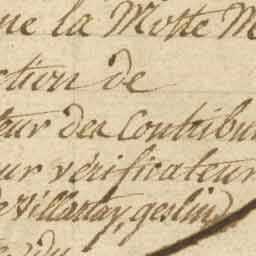 ne la Motte M
ction de
teur des Contribu
ur vérificateur
de Villartay, geslin